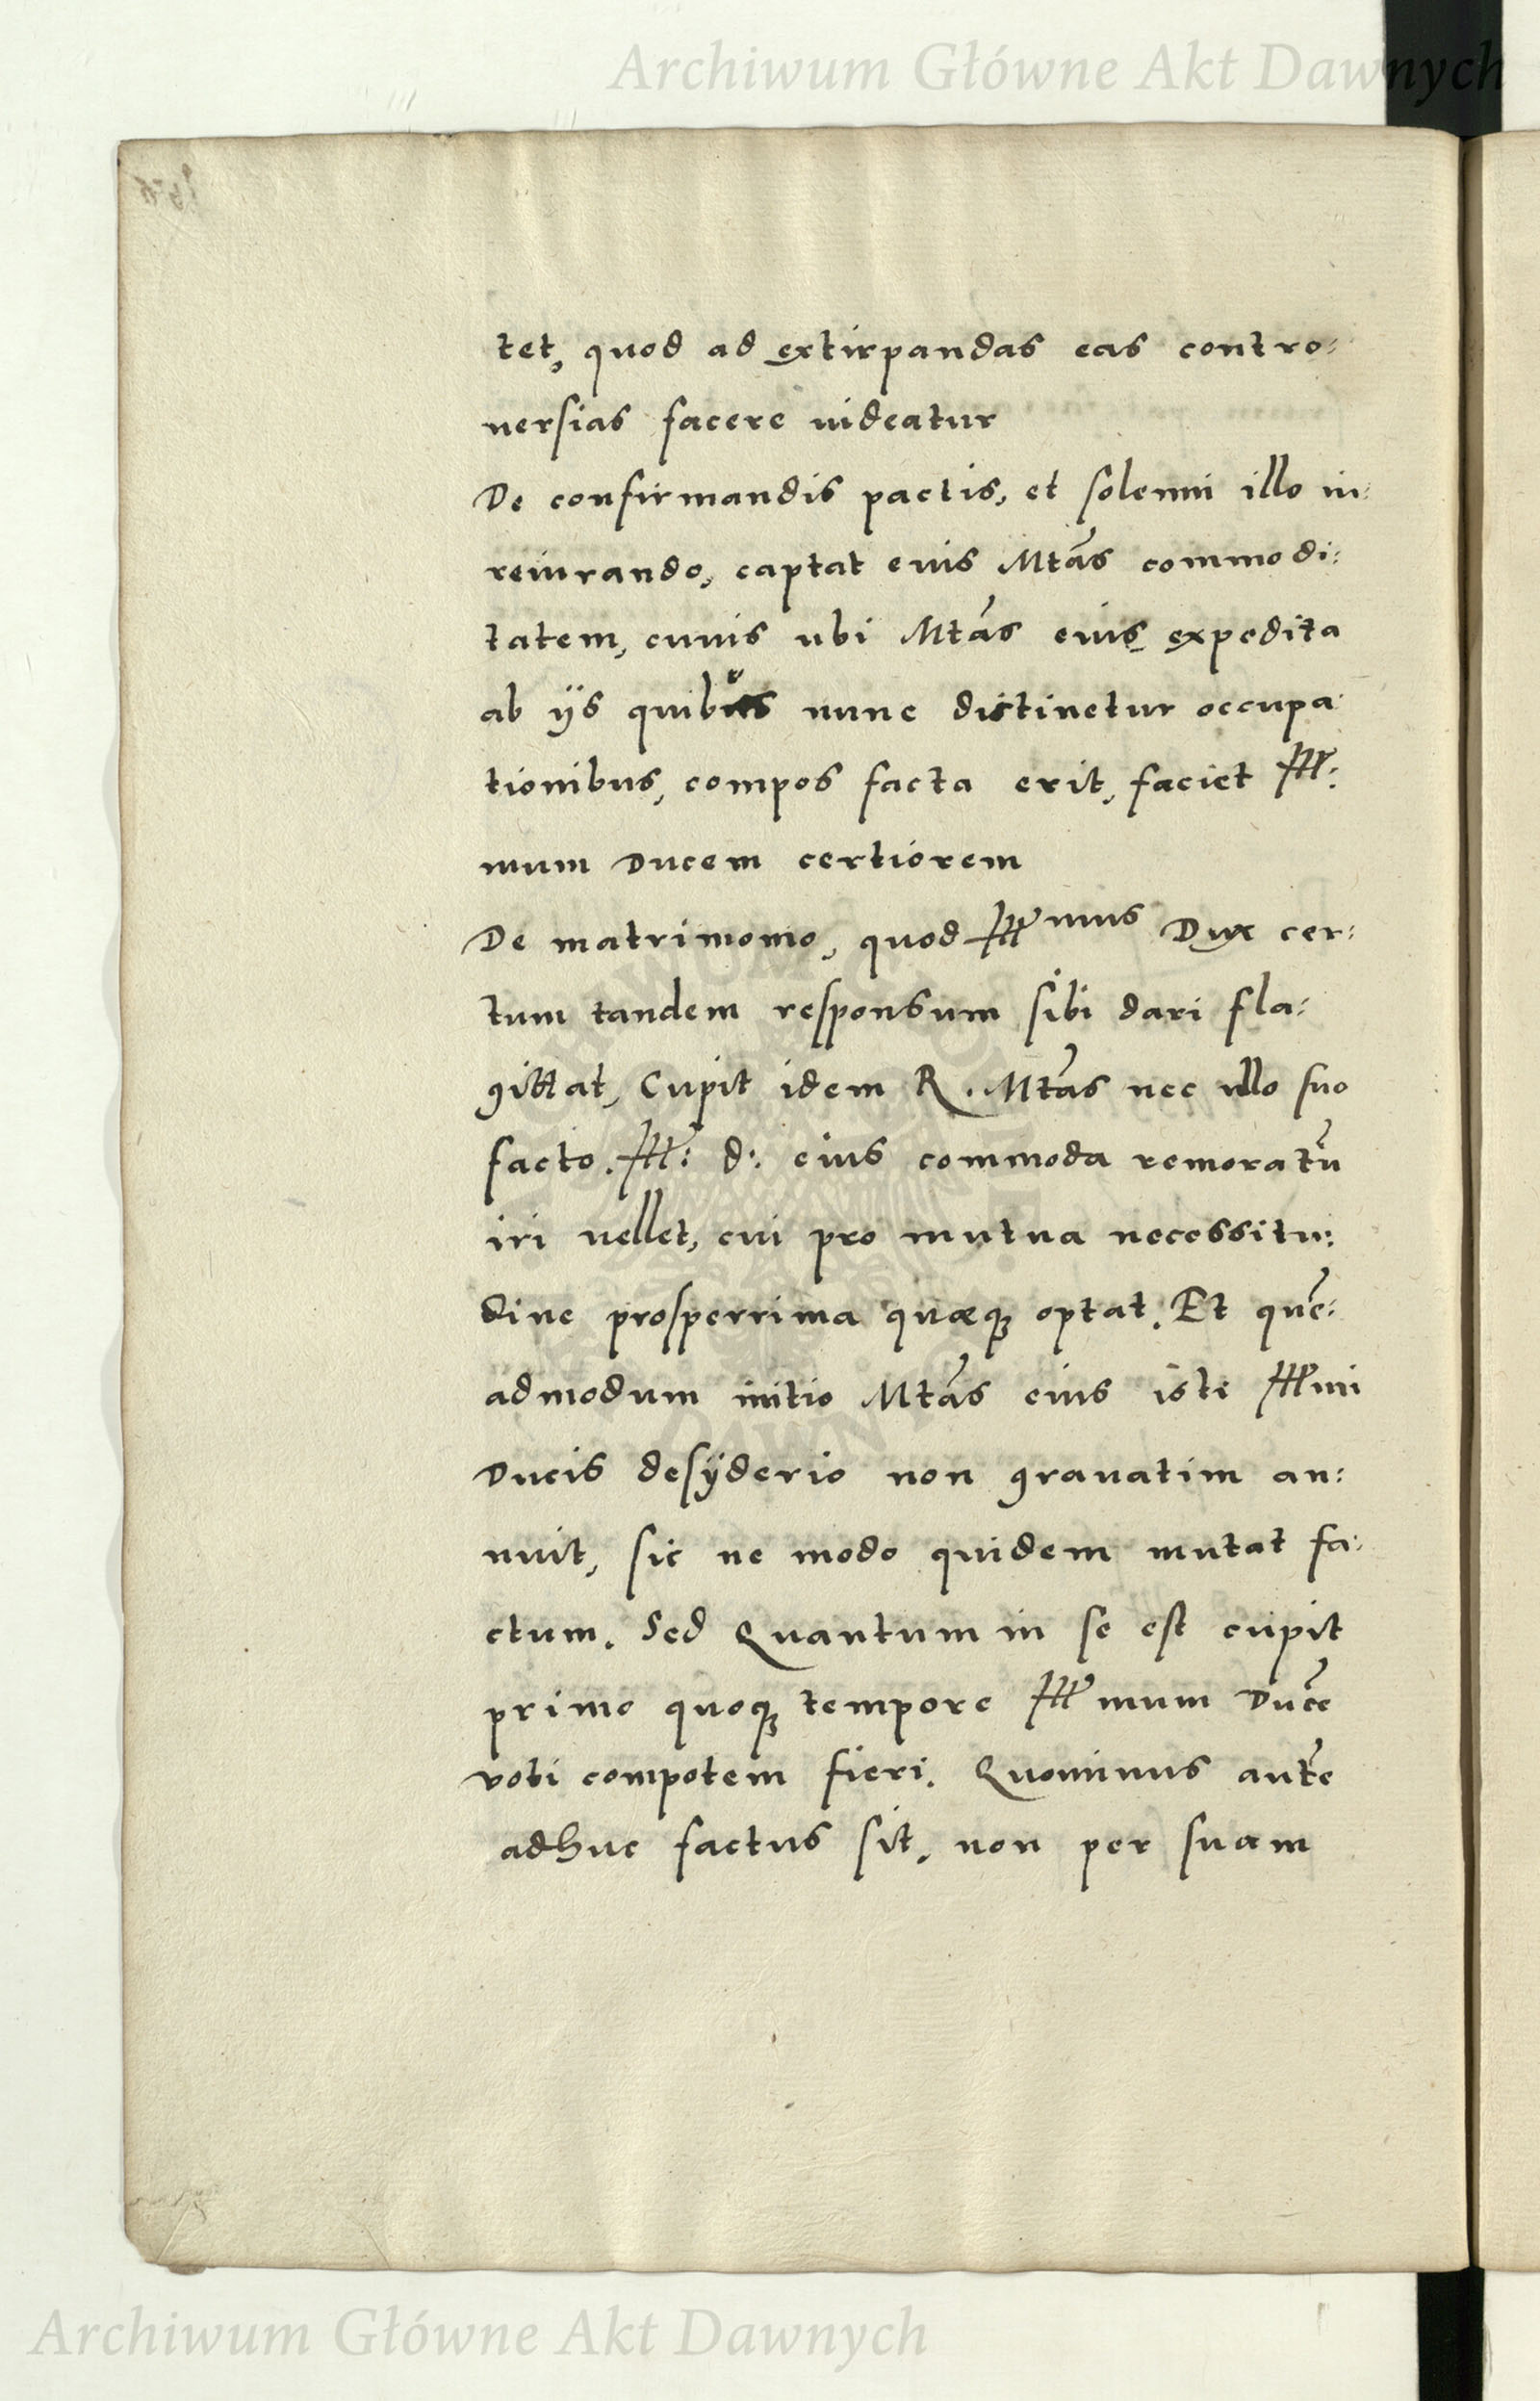 Archiwum Główne Akt Dawnych
tet, quod ad extirpandas eas contro:
uersias facere uideatur
De confirmandis pactis, et solenni illo iu:
reiurando, captat eius Mtas commodi:
tatem, cuius ubi Mtas eius expedita
ab ijs quibus nunc distinetur occupa:
tionibus, compos facta erit, faciet Ill:
mum Ducem certiorem
De matrimonio, quod Ill mus Dux cer:
tum tandem responsum sibi dari fla:
gittat, Cupit idem R. Mtas nec ullo suo
facto. Ill: d: eius commoda remoratū
iri uellet, cui pro mutua necessitu:
dine prosperrima quæq; optat. Et quē:
admodum initio Mtas eius isti Illmi
Ducis desÿderio non grauatim an:
nuit, sic ne modo quidem mutat fa:
ctum. Sed Quantum in se est cupit
primo quoq; tempore Ill mum Ducē
voti compotem fieri. Quominus autē
adhuc factus sit, non per suam
Archiwum Główne Akt Dawnych